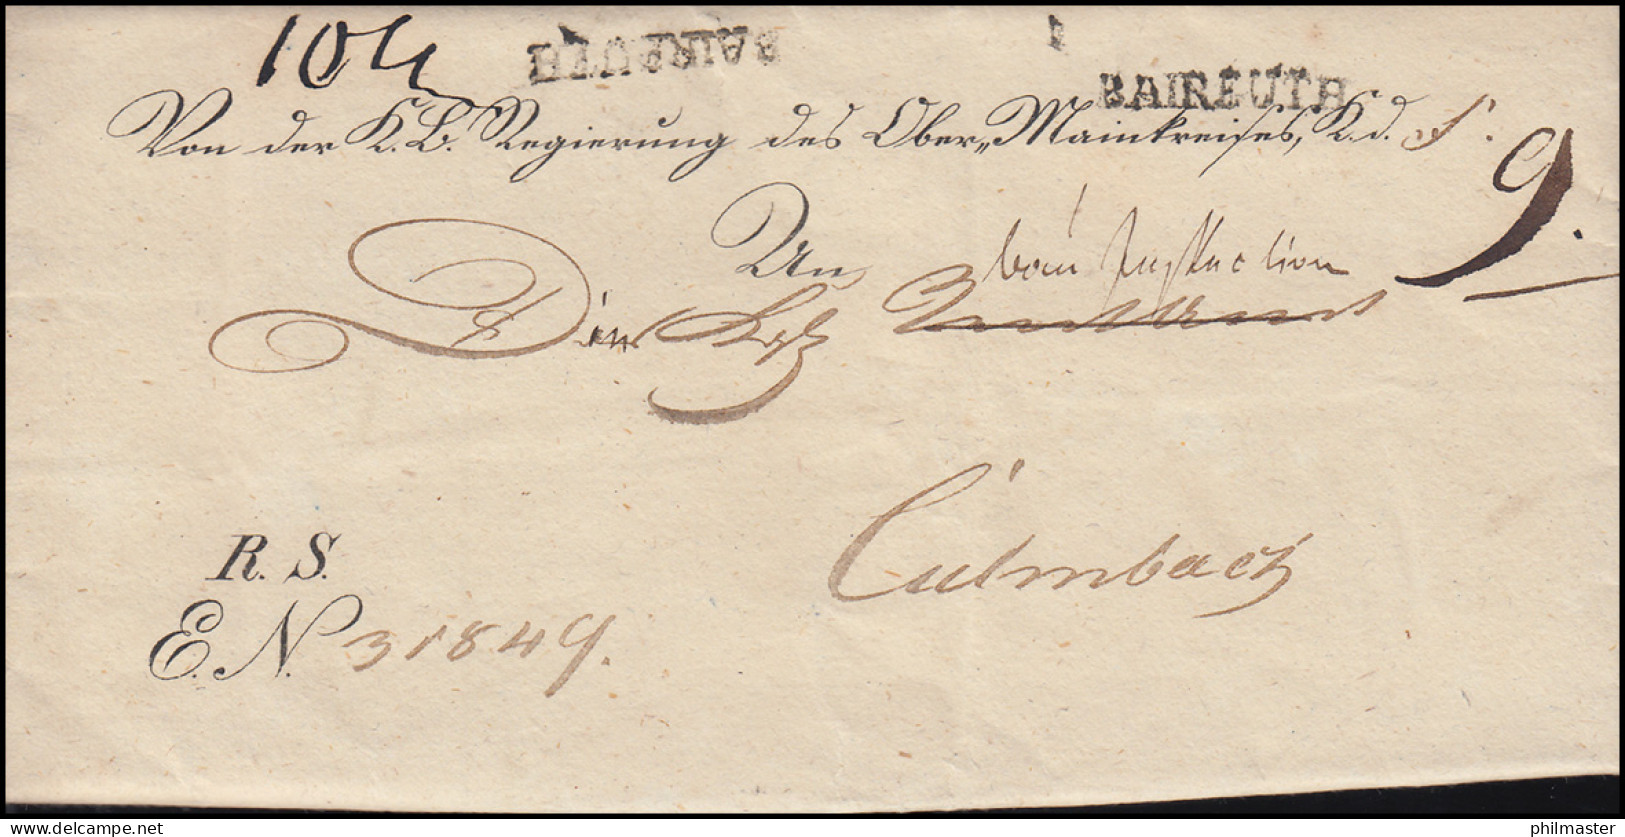 104
BAIREUTH
BAIREUTH
Von der K. B. Regierung des Ober„Mainkreises, K. d. I.
9.
An
bau Inspection
Die Kgl.
Culmbach
R. S.
E. N. 31849.
delcampe.net
philmaster